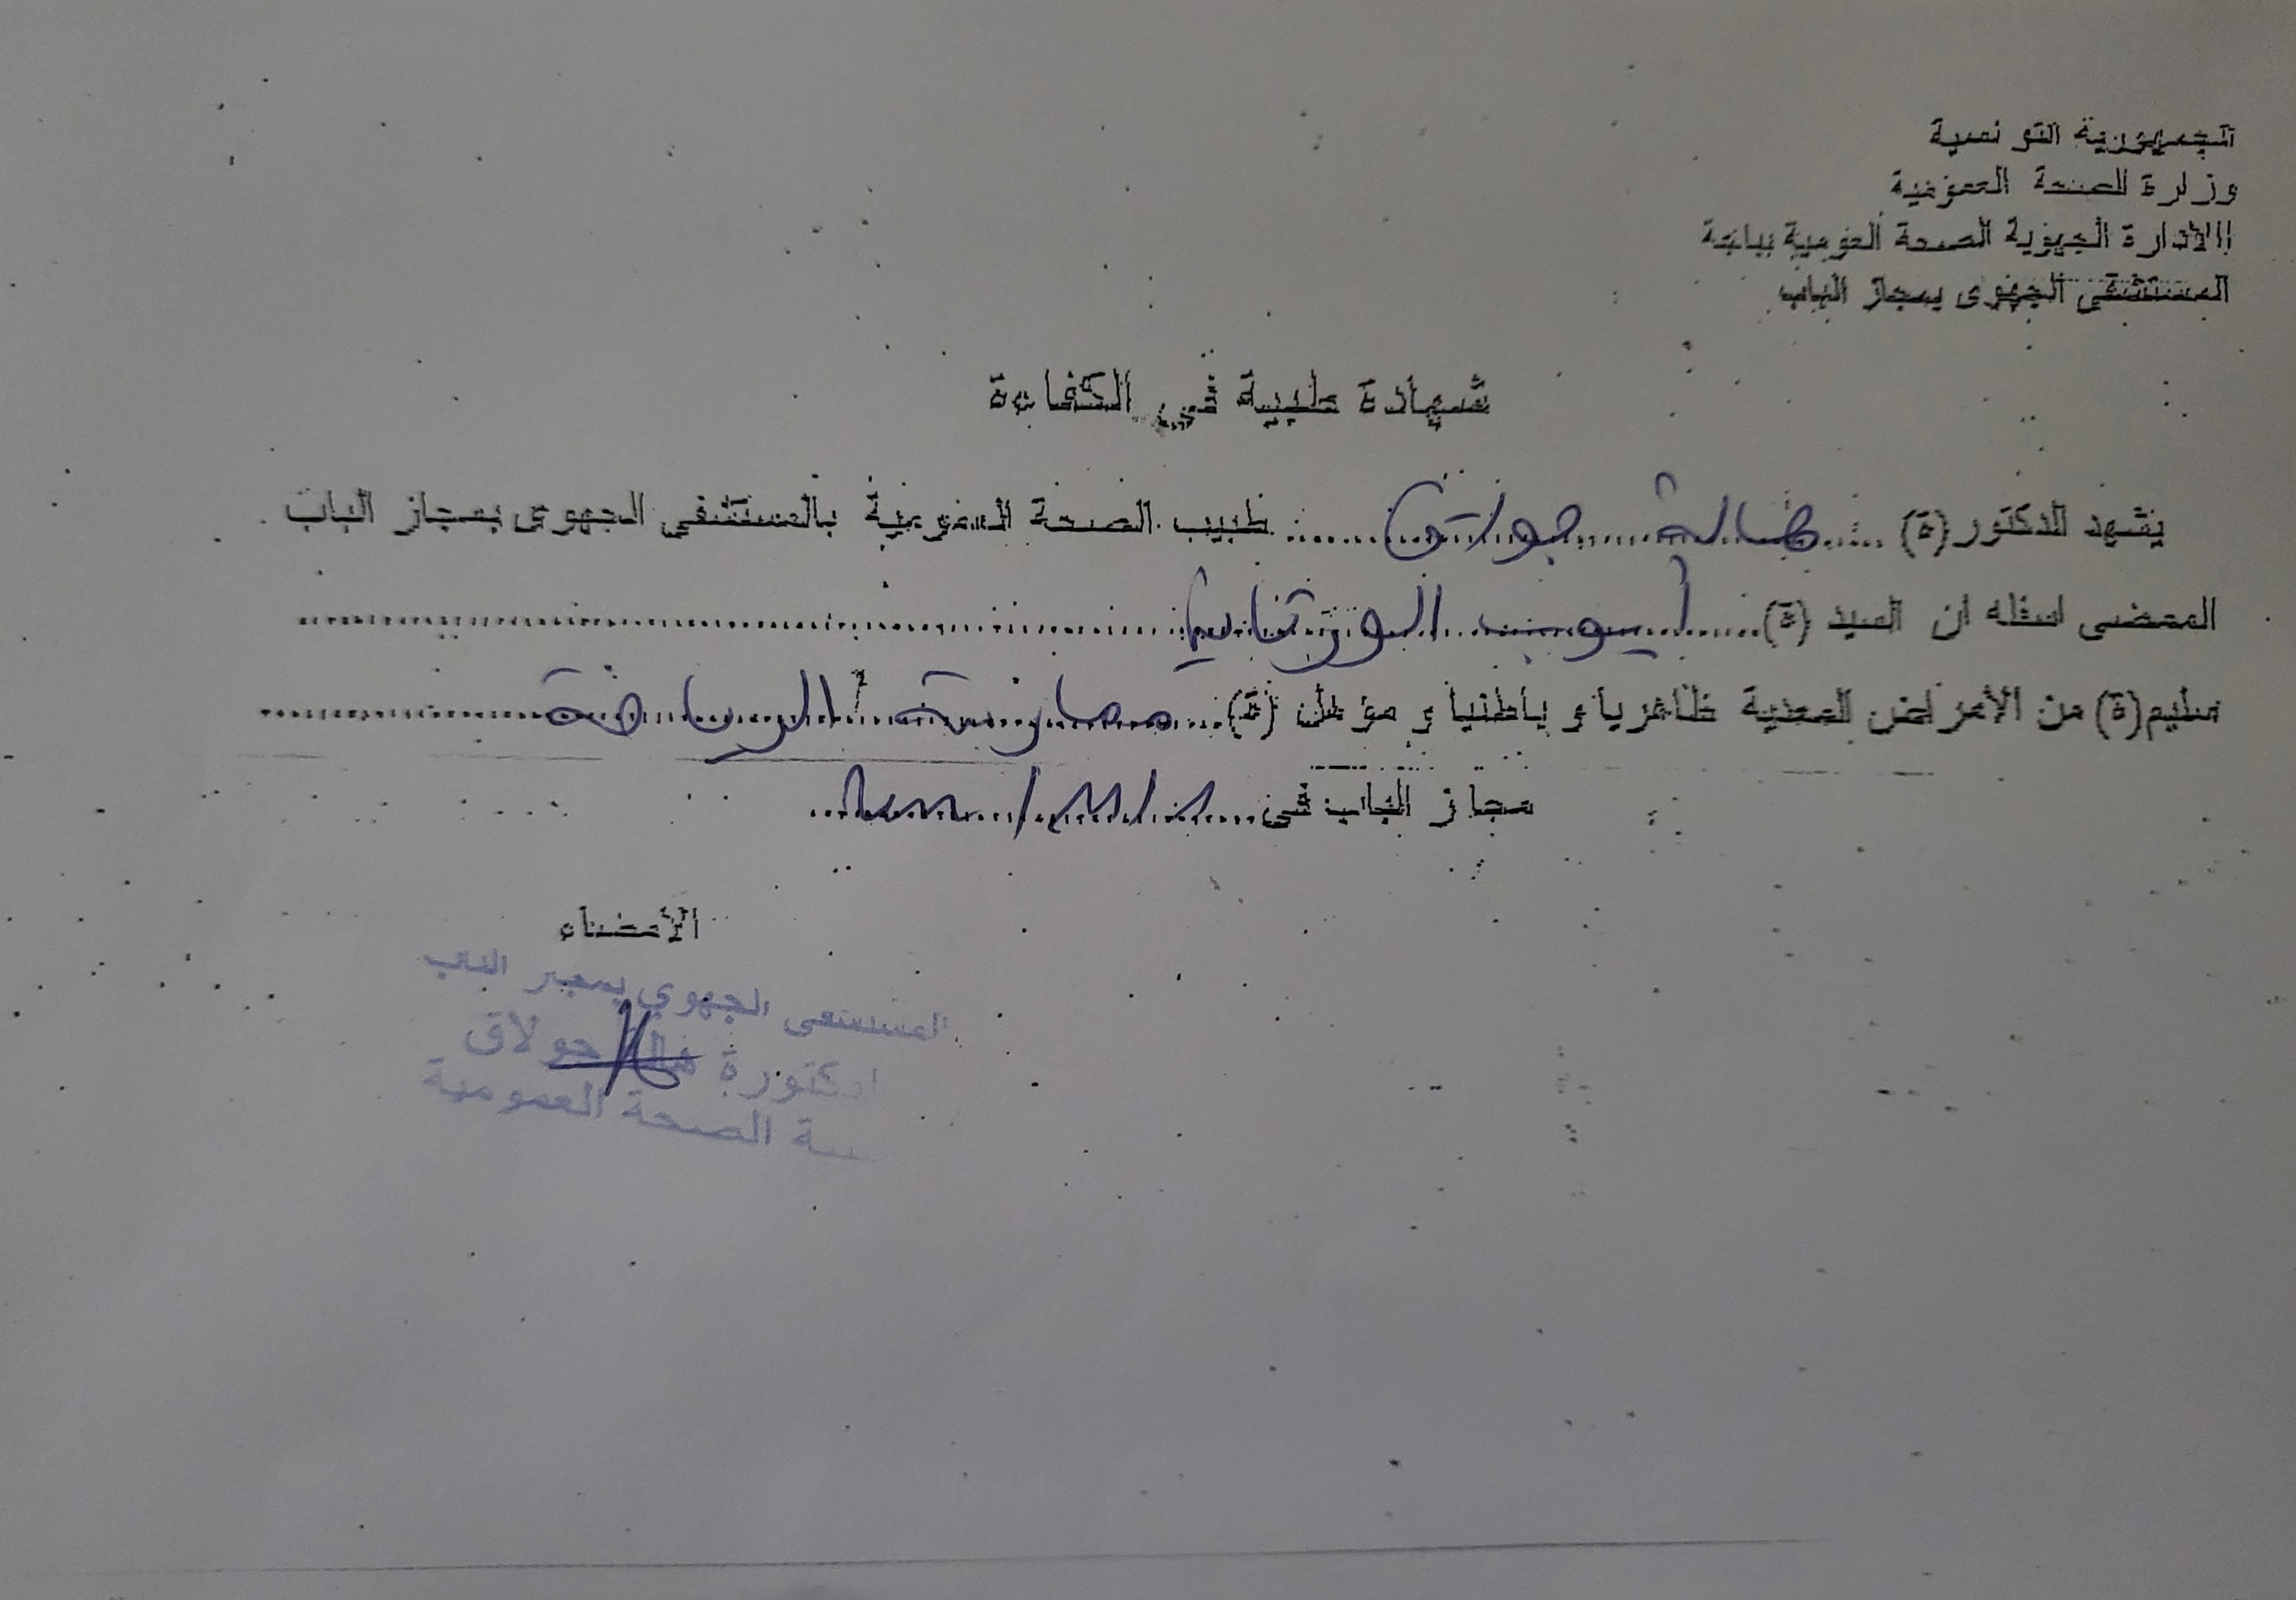 الجمهورية التونسية
وزارة الصحة العمومية
الادارة الجهوية الصحة العومية بباجة
المستشفى الجهوى بمجاز الباب
شهادة طبية في الكفاءة
يشهد الدكتور(ة) هالة جولاق طبيب الصحة العمومية بالمستشفى الجهوى بمجاز الباب
الممضى اسفله ان السيد (ة) أيوب الورتاني
سليم(ة) من الأمراض المعدية ظاهريا و باطنيا و مؤهل (ة) ممارسة الرياضة
مجاز الباب فى
الأمضاء
المستشفى الجهوي بمجاز الباب
الدكتورة هالة جولاق
الصحة العمومية